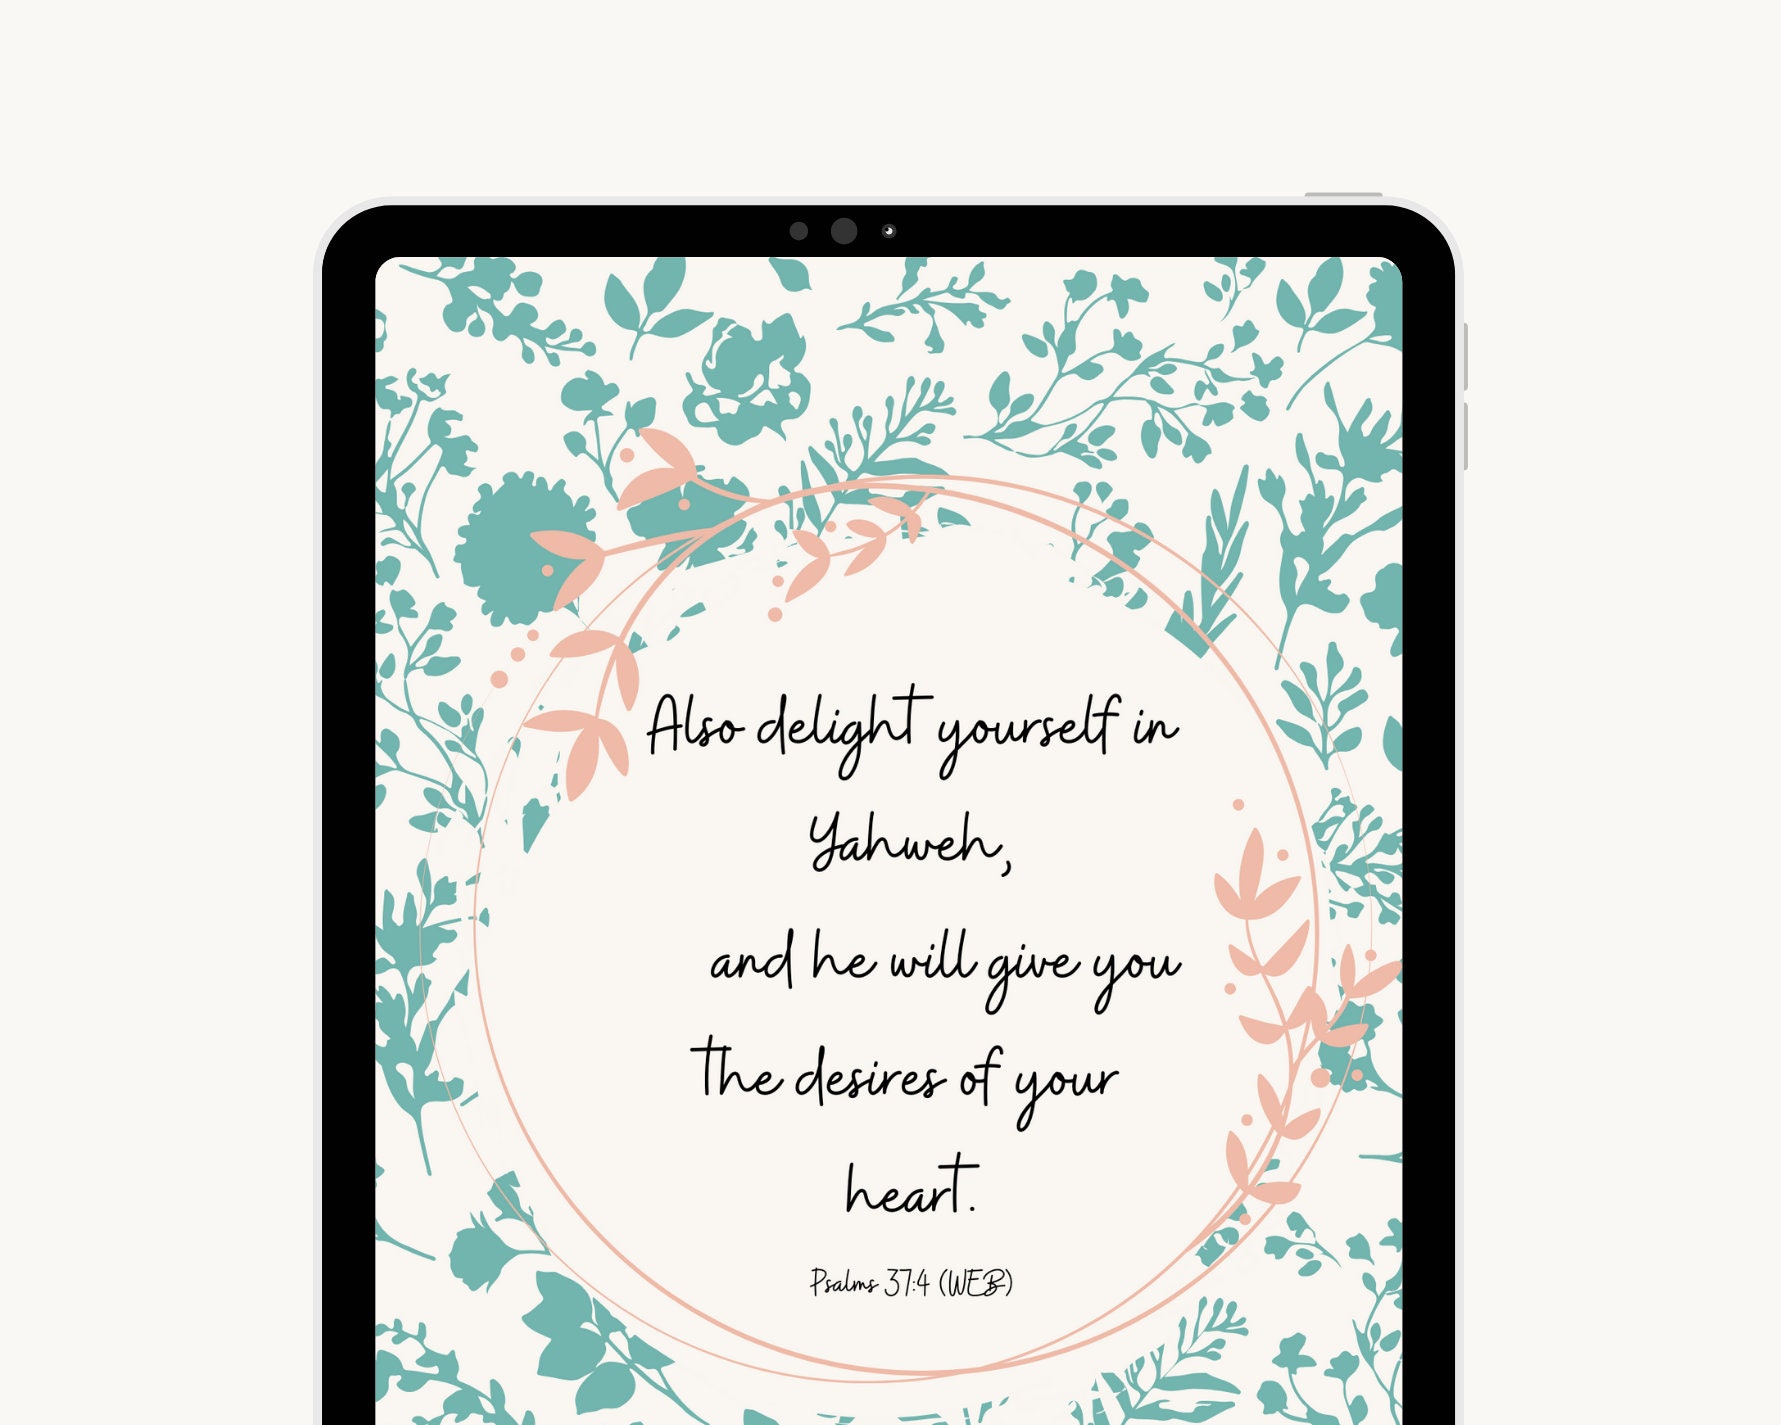 Also delight yourself in
Yahweh,
and he will give you
the desires of your
heart.
Psalms 37:4 (WEB)